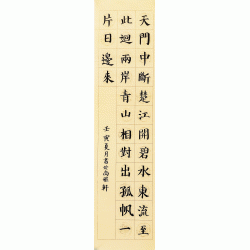 天門中斷楚江開碧水東流至
此迴兩岸青山相對出孤帆一
片日邊来
壬寅夏月書於尚軒